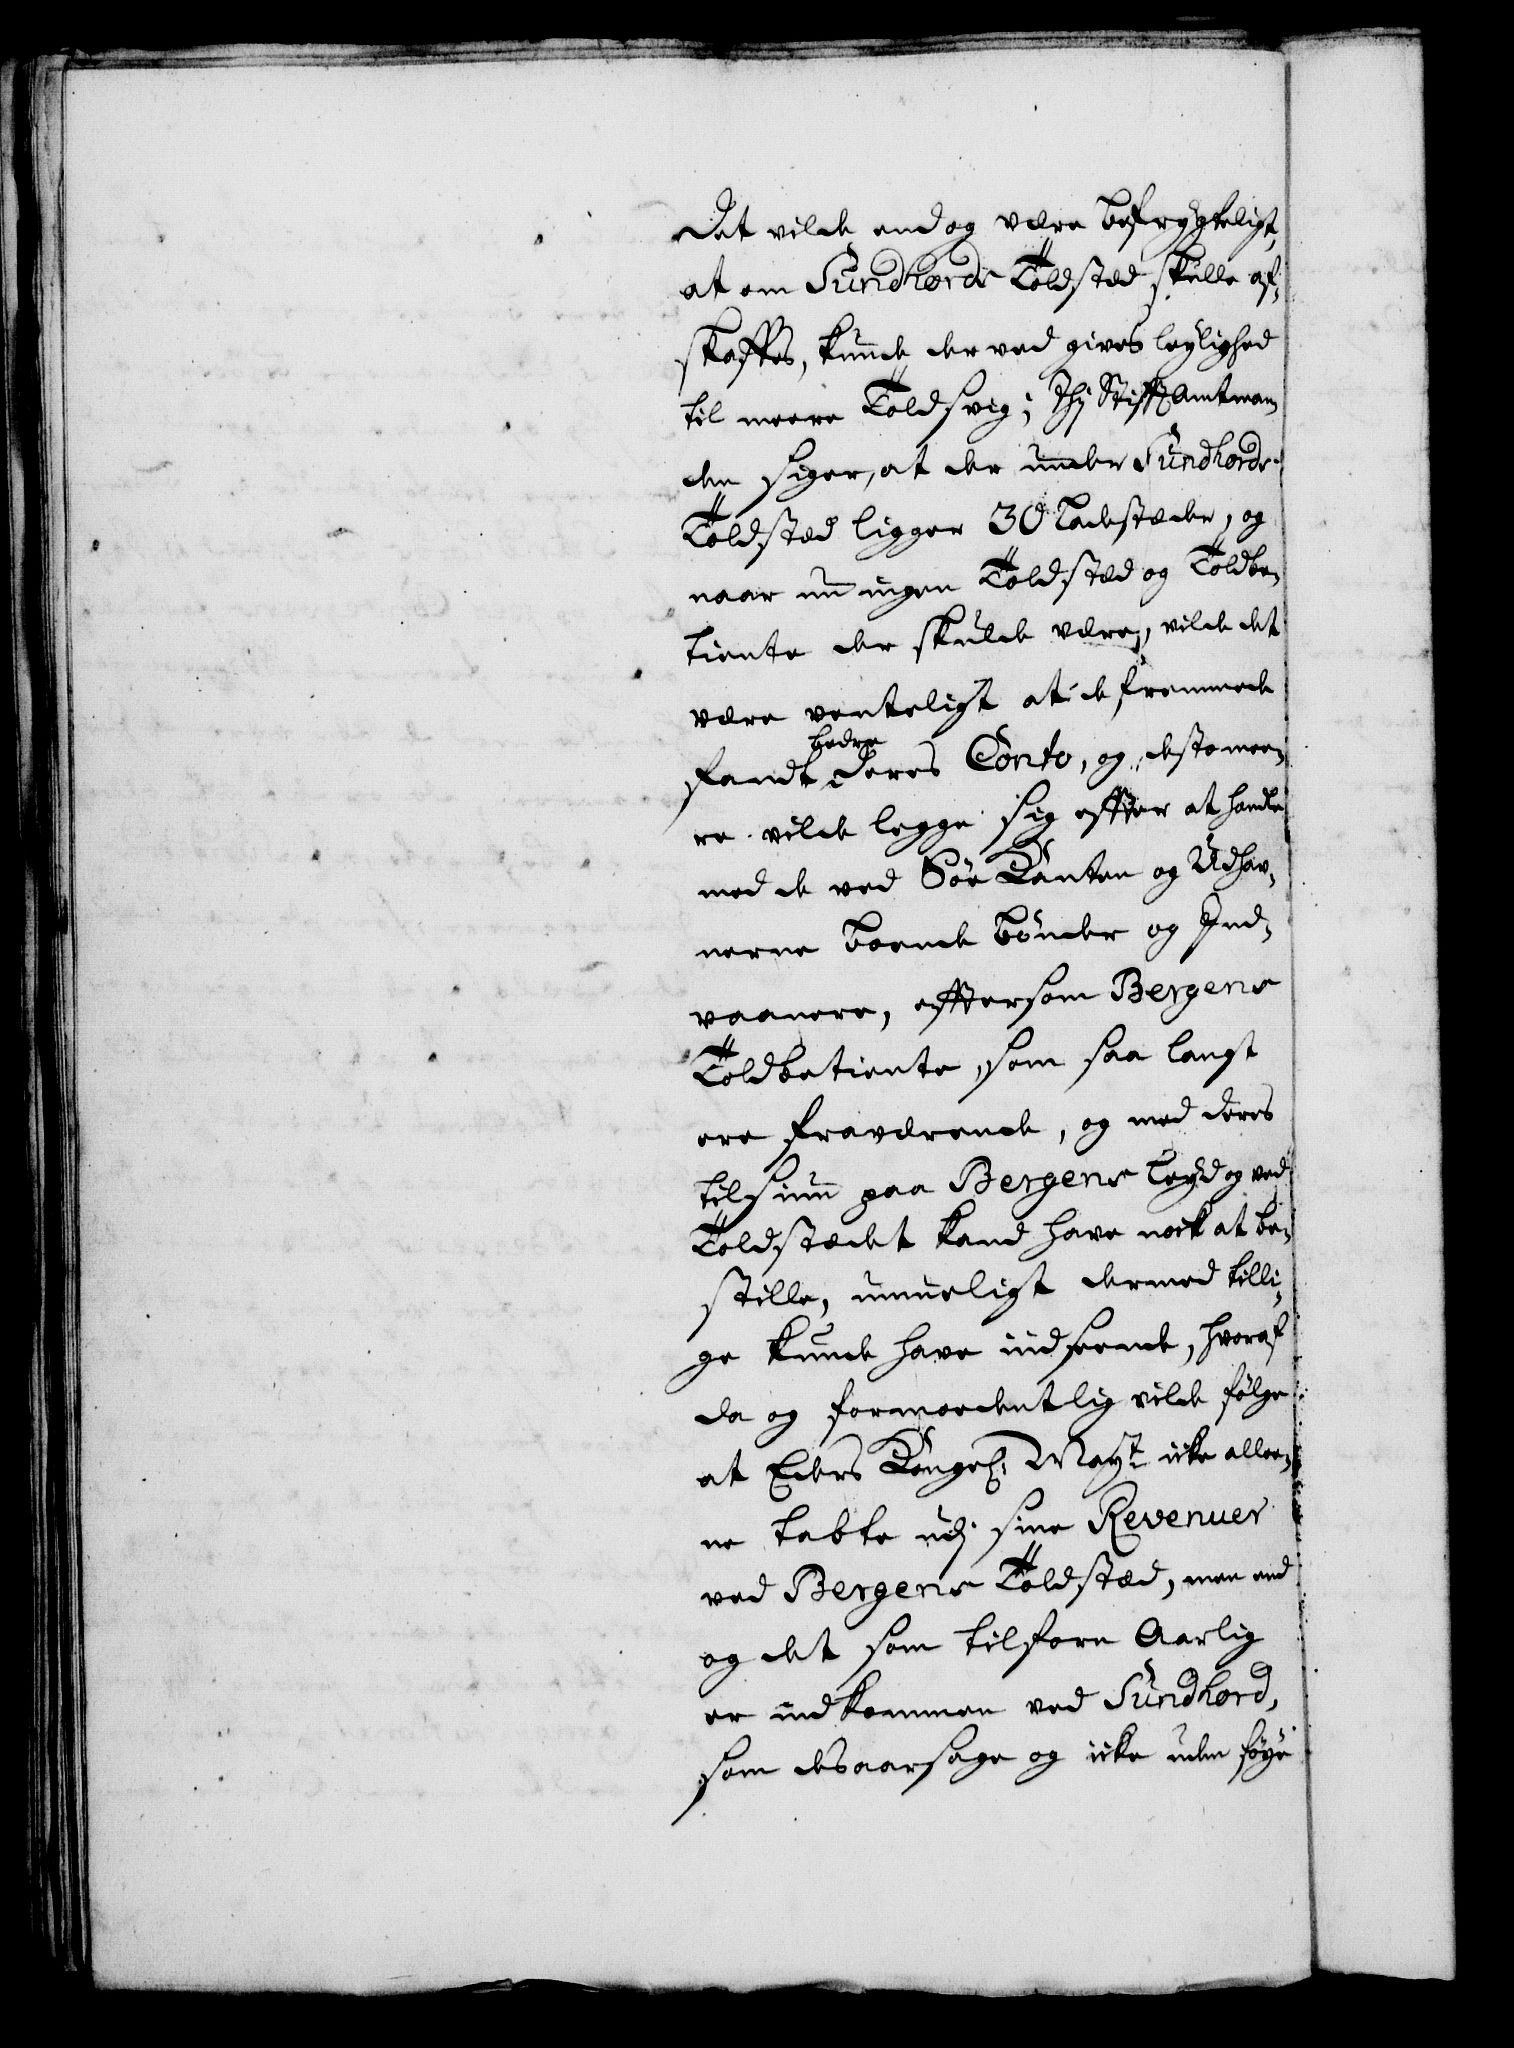 Det vilde endog være befrygteligt,
at om Sundhords Toldsted skulle af¬
skaffes, kunde der ved gives leylighed
til meere Toldsvig; Thj Stifftamtman
den siger, at der under Sundhords
Toldsted ligger 30 Ladestæder, og
naar nu ingen Toldsted og Toldbe¬
tiente der skulde være, vilde det
være venteligt at de fremmede
fandt bedre deres Conto, og desto mee¬
re vilde legge sig effter at handle
med de ved Söe Kanten og Udhav¬
nerne boende bönder og Ind¬
vaanere, efftersom Bergens
Toldbetiente, som saa langt
ere fraværende, og med deres
tilsiun paa Bergens Leyd og ved
Toldstædet kand have nock at be¬
stille, umueligt dermed tilli¬
ge kunde have indseende, hvoraf
da og formoedentlig vilde følge
at Eders Kongel: Mayt icke allee¬
ne tabte udj sine Revenuer
ved Bergens Toldsted, men end
og det som tilforn Aarlig
er indkommen ved Sundhord,
som desaarsage og icke uden föye